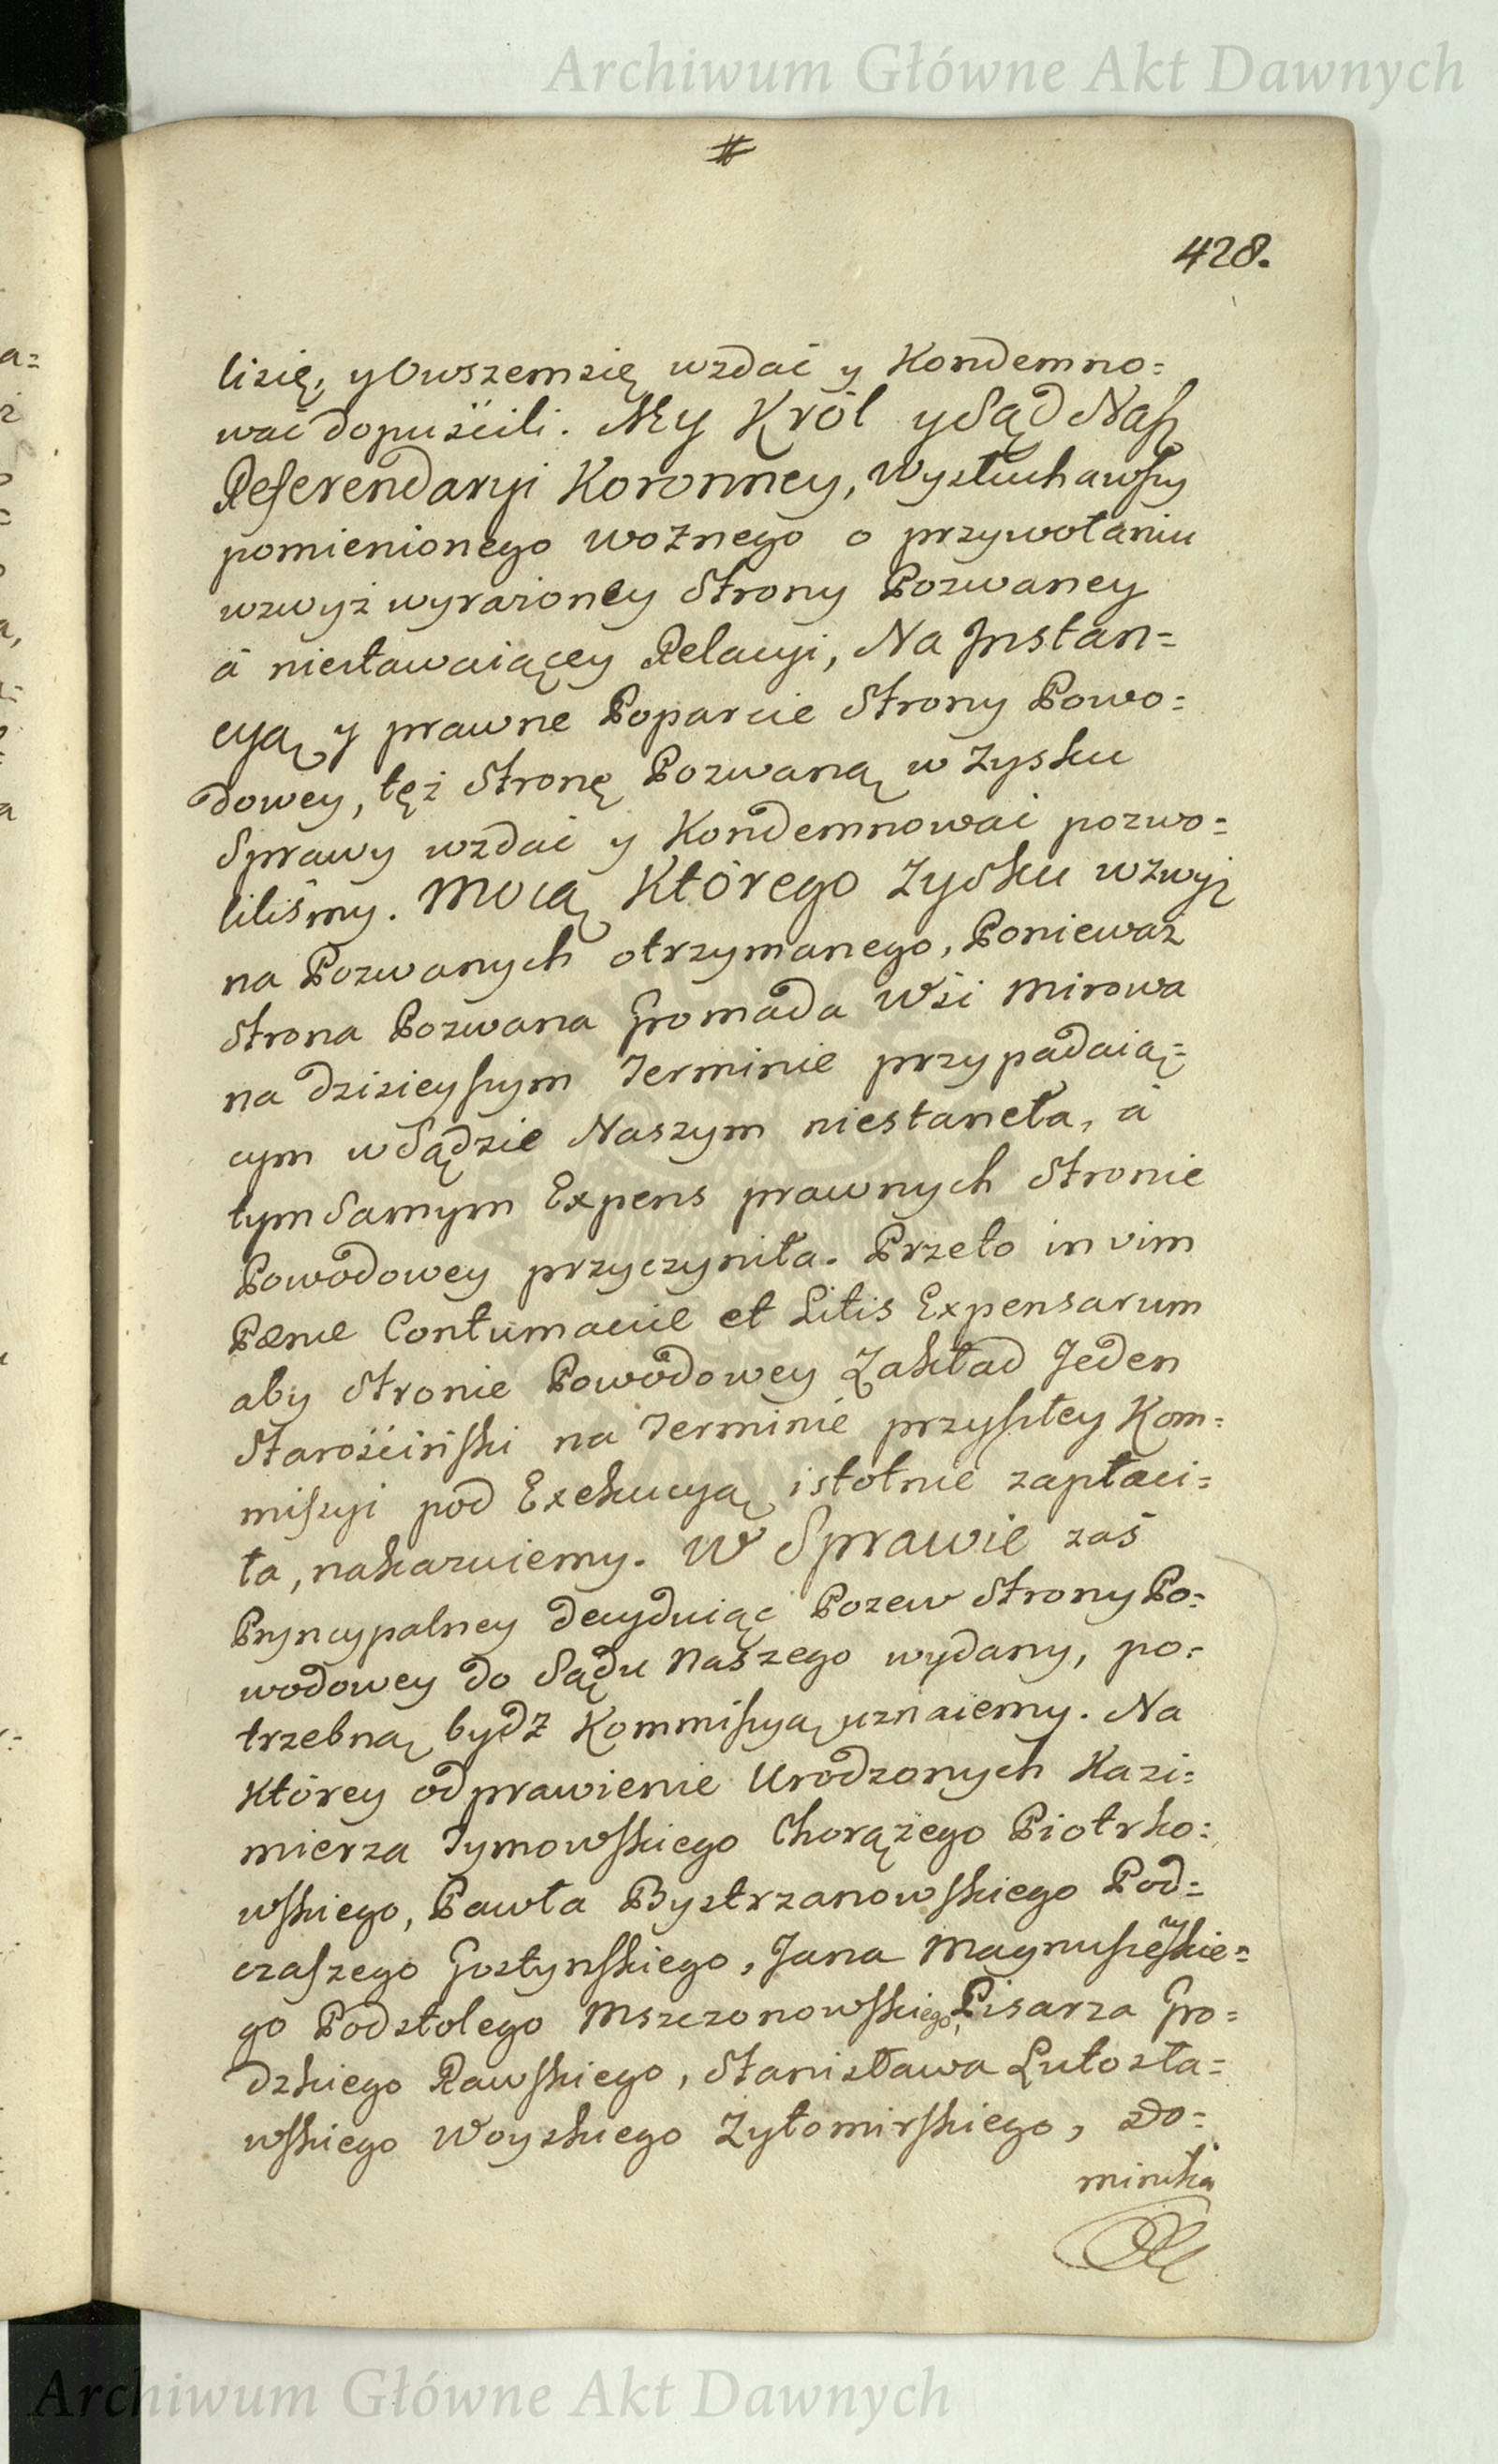 Archiwum Główne Akt Dawnych
#
428.
li się, y Owszem się wzdać y Kondemno=
wać dopuścili. My Król y Sąd Nasz
Referendaryi Koronney, Wysłuchawszy
pomienionego woźnego o przywołaniu
wzwyż wyrażoney Strony Pozwaney
á niestawaiącey Relacyi, Na Jnstan=
cyą y prawne Poparcie Strony Powo=
dowey, tęż Stronę Pozwaną w Zysku
Sprawy wzdać y Kondemnować pozwo=
liliśmy. Mocą Którego Zysku wzwyż
na Pozwanych otrzymanego, Ponieważ
Strona Pozwana Gromada Wśi Mirowa
na dzisieyszym Terminie przypadaią=
cym w Sądzie Naszym niestaneła, á
tym Samym Expens prawnych Stronie
Powodowey przyczyniła. Przeto in vim
Pænæ Contumaciæ et Litis Expensarum
aby Stronie Powodowey Zakład Jeden
Starościński na Terminie przyszłey Kom=
miszyi pod Exekucyą istotnie zapłaci=
ła, nakazuiemy. W Sprawie zaś
Pryncypalney decyduiąc Pozew Strony Po=
wodowey do Sądu Naszego wydany, po=
trzebną bydź Kommiszyą uznaiemy. Na
Którey odprawienie Urodzonych Kazi=
mierza Tymowskiego Chorążego Piotrko=
wskiego, Pawła Bystrzanowskiego Pod=
czaszego Gostynskiego, Jana Magnuszewskie=
go Podstolego Mszczonowskiego, Pisarza Gro=
dzkiego Rawskiego, Stanisława Lutosła=
wskiego Woyskiego Zytomirskiego, Do=
minika
Archiwum Główne Akt Dawnych